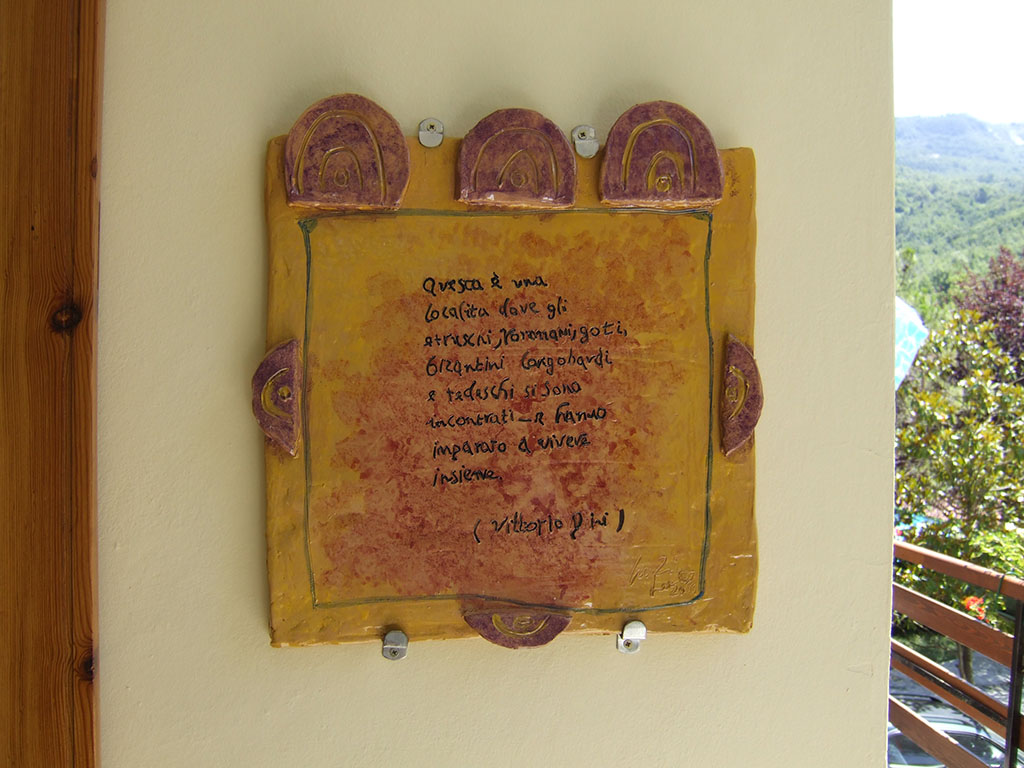 Questa è una
località dove gli
etruschi, romani, goti,
bizantini longobardi
e tedeschi si sono
incontrati e hanno
imparato a vivere
insieme.
(Vittorio Dini)